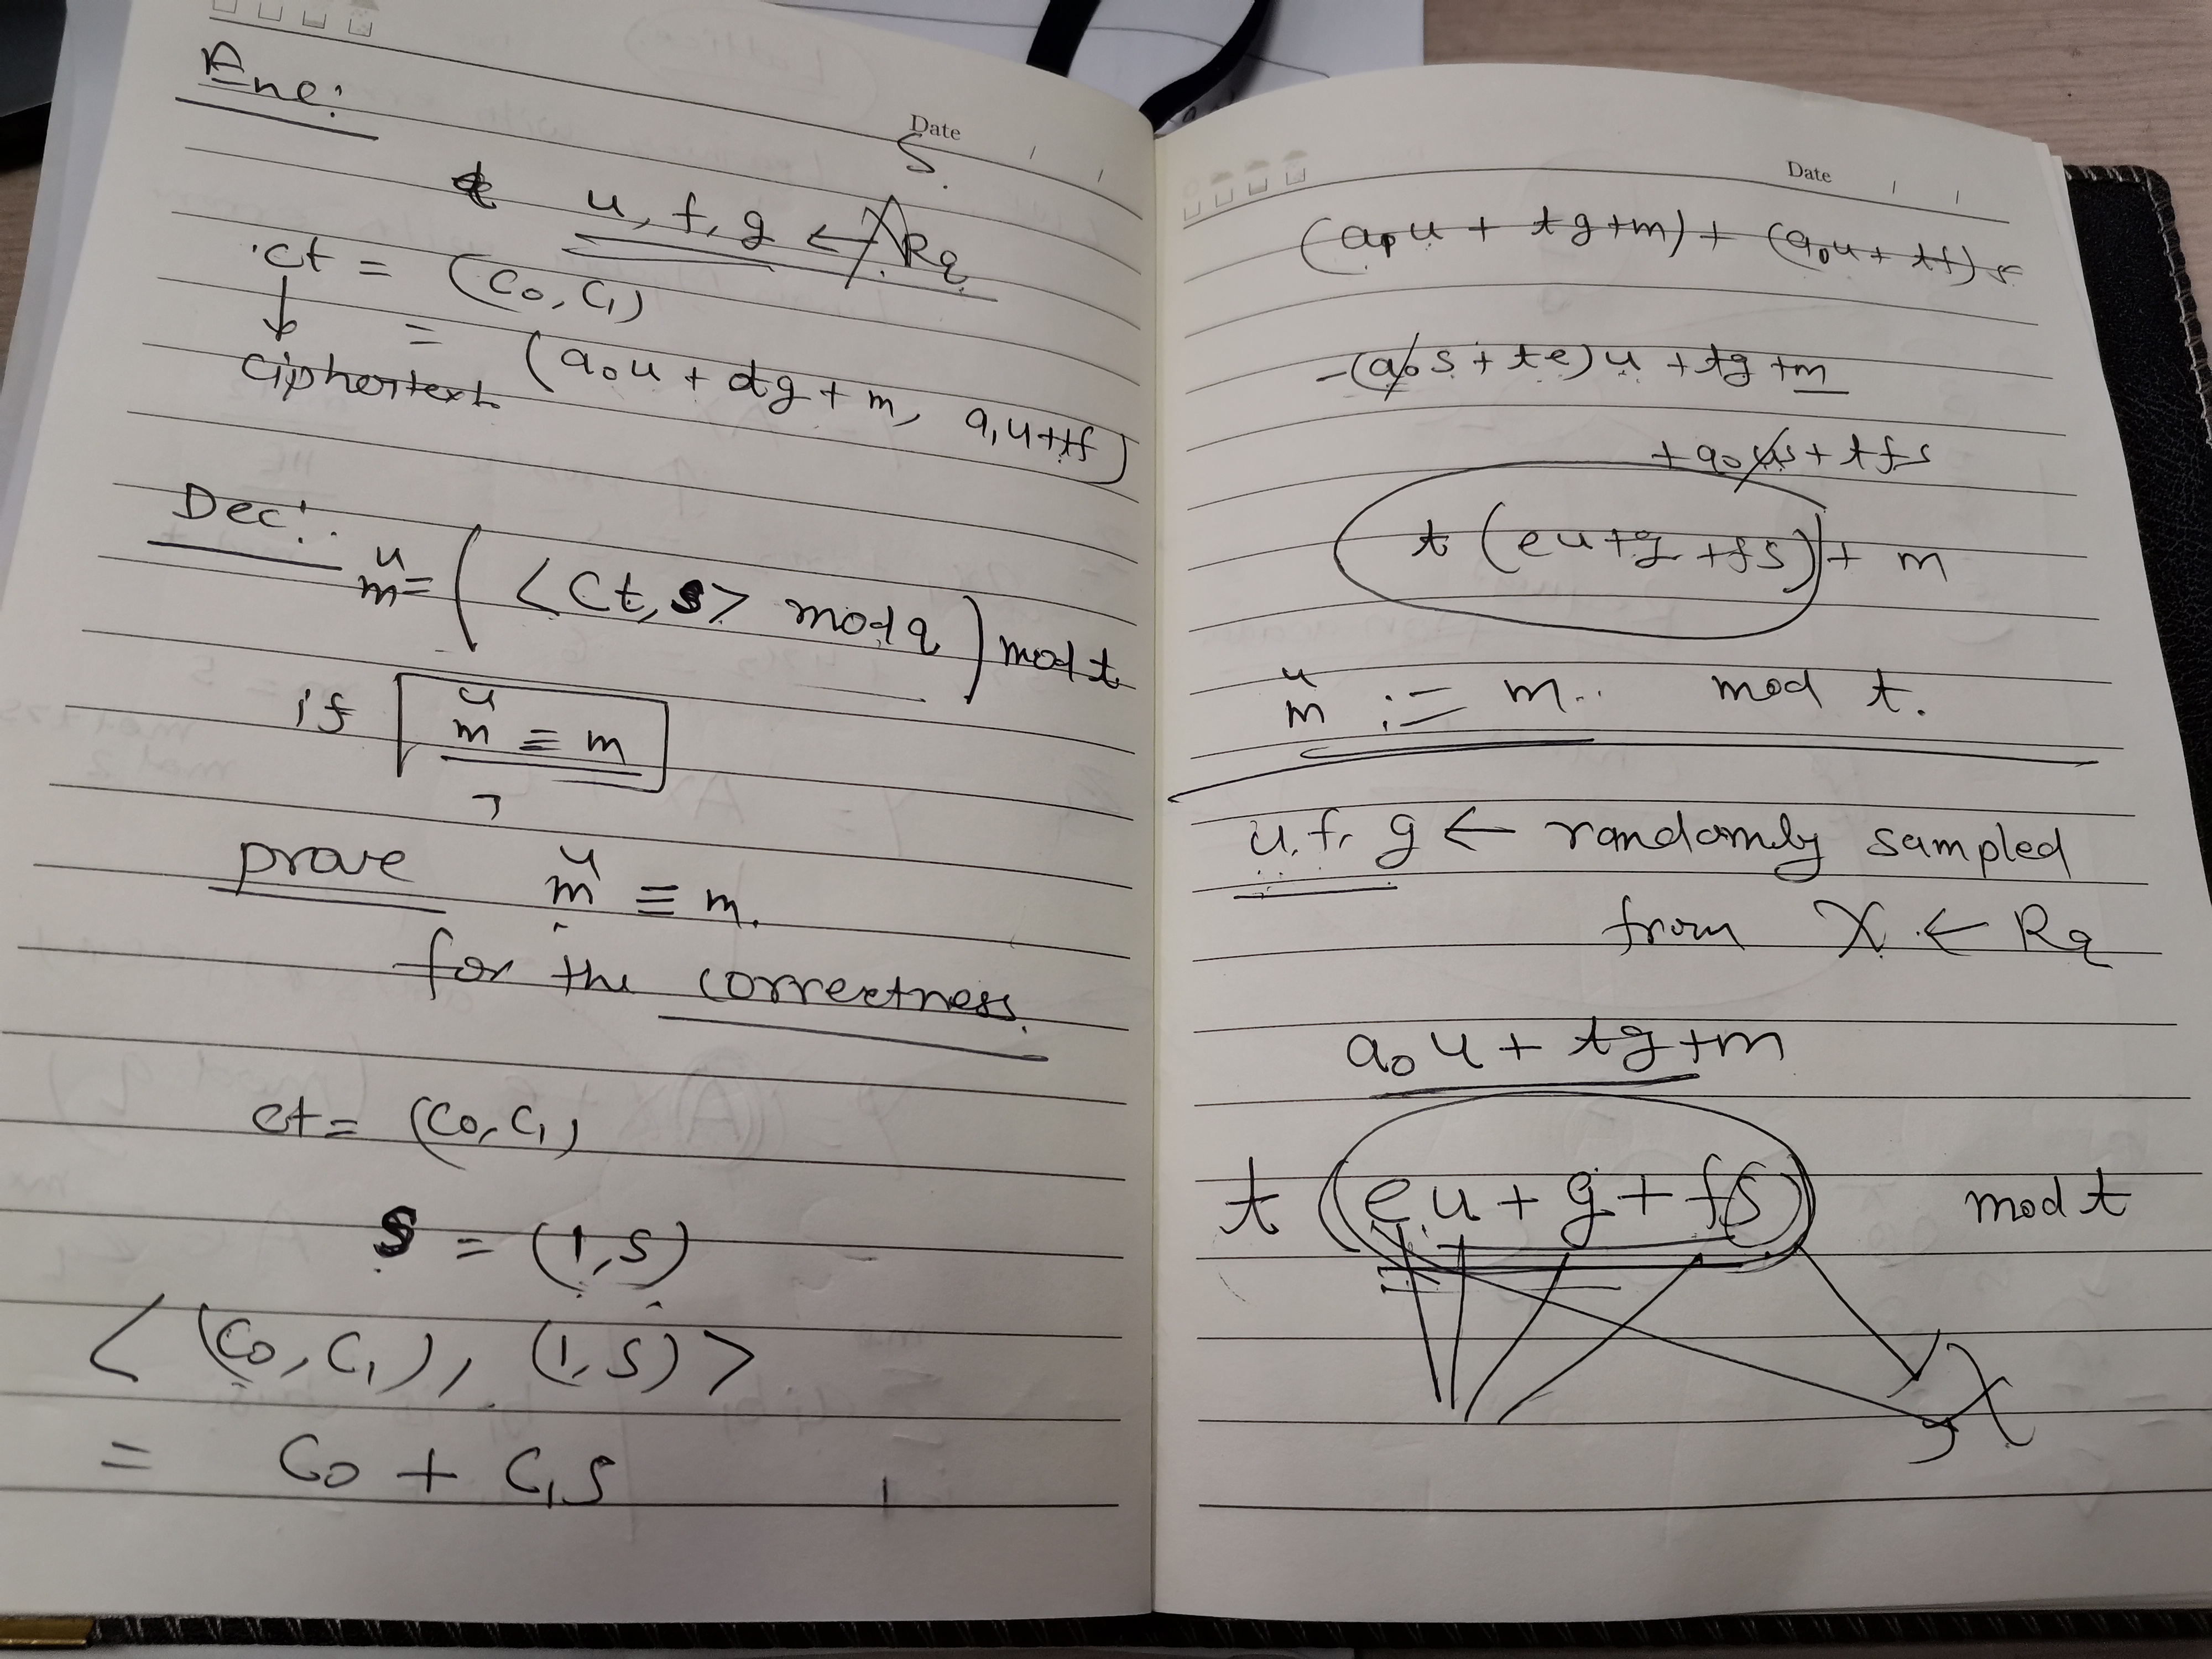 Enc:
Date
S.
u, f, g ← χ Rq
ct = (c₀, c₁)
↓ = (a₀u + tg + m, a₁u + tf)
ciphertext
Dec:
m̆ = (<ct, s> mod q) mod t
if m̆ ≡ m
prove m̆ ≡ m.
for the correctness.
ct = (c₀, c₁)
s = (1, s)
< (c₀, c₁), (1, s) >
= c₀ + c₁s
Date
(a₁u + tg + m) + (a₀u + tf)s
-(a₀s + te)u + tg + m
+ a₀us + tfs
t (eu + g + fs) + m
m̆ := m.. mod t.
u, f, g ← randomly sampled
from χ ← Rq
a₀u + tg + m
t (eu + g + fs) mod t
χ